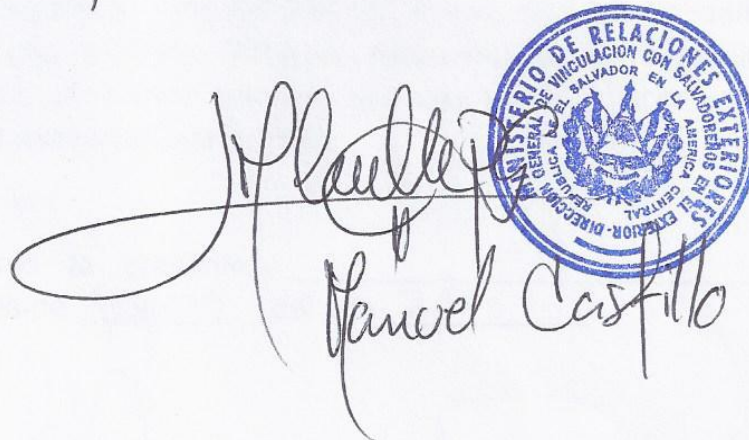 MINISTERIO DE RELACIONES EXTERIORES
DIRECCION GENERAL DE VINCULACION CON SALVADOREÑOS EN EL EXTERIOR-
REPUBLICA DE EL SALVADOR EN LA AMERICA CENTRAL
Manuel Castillo